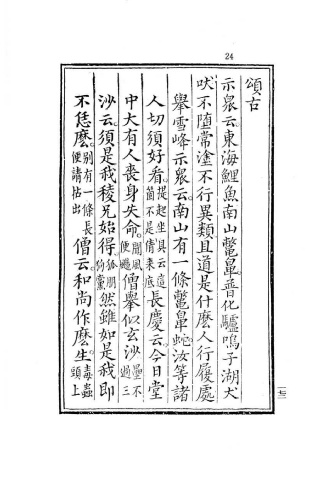 24
頌古
示衆云。東海鯉魚南山鼈鼻。普化驢鳴子湖犬
吠不墮常塗不行異類且道是什麽人行履處
舉雪峰示衆云。南山有一條鼈鼻蛇汝等諸
人切須好看。提起坐具云這箇不是借來底長慶云今日堂
中大有人喪身失命。聞風便颺僧舉似玄沙疊不過三
沙云須是我稜兄始得狐朋狗黨然雖如是我即
不恁麽。別有一條長便請拈出僧云。和尚作麽生。毒蟲頭上